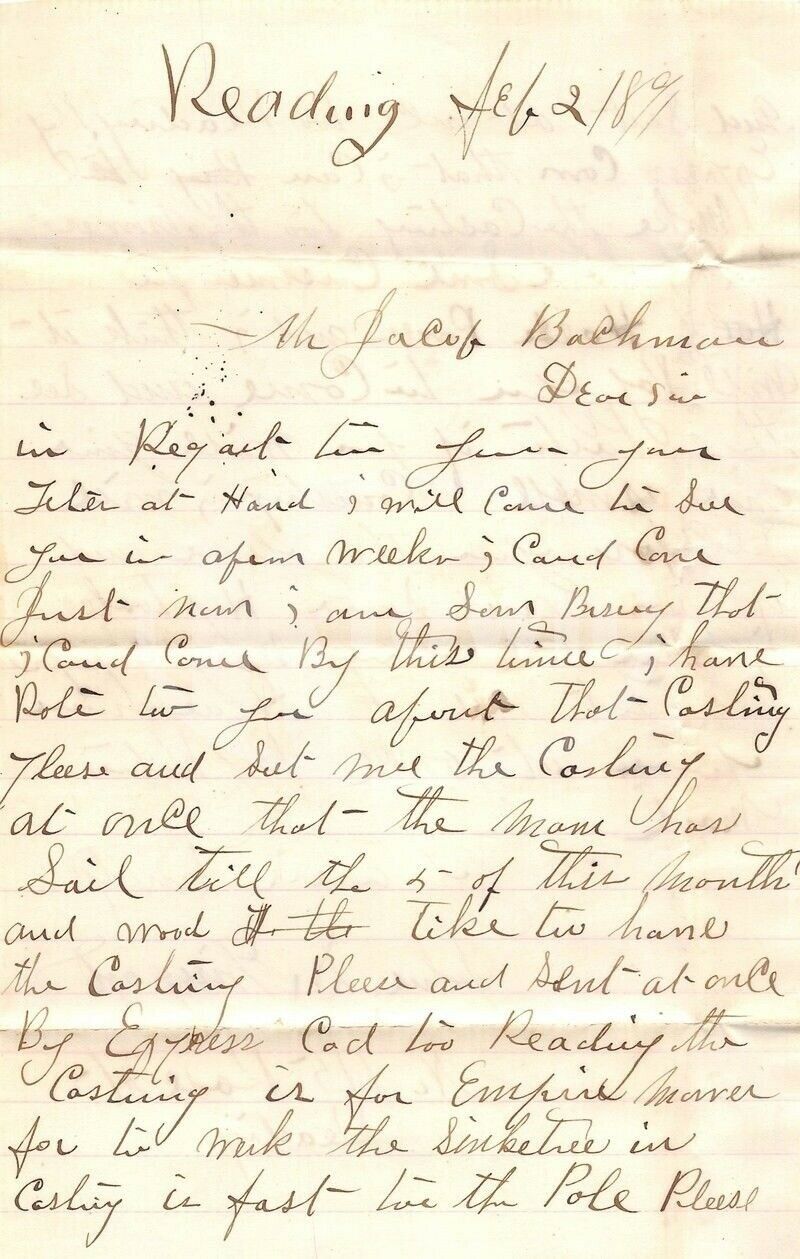 Reading Feb 2/189
Mr Jacob Bachman
Dear Sir
in Regart too your
leter at Hand i will Come to See
you in afew Weeks i Cand Come
Just now i am Sow Bisey that
i Cand Come By this time i have
Rote too you about that Casting
Pleese and Set mee the Casting
at once that the Mam has
Sail till the 5 of this Month
and wood like too have
the Casting Pleese and Sent at once
By Express Cod too Reading the
Casting is for Empire Mower
for to work the Sinketree in
Casting is fast too the Pole Pleese